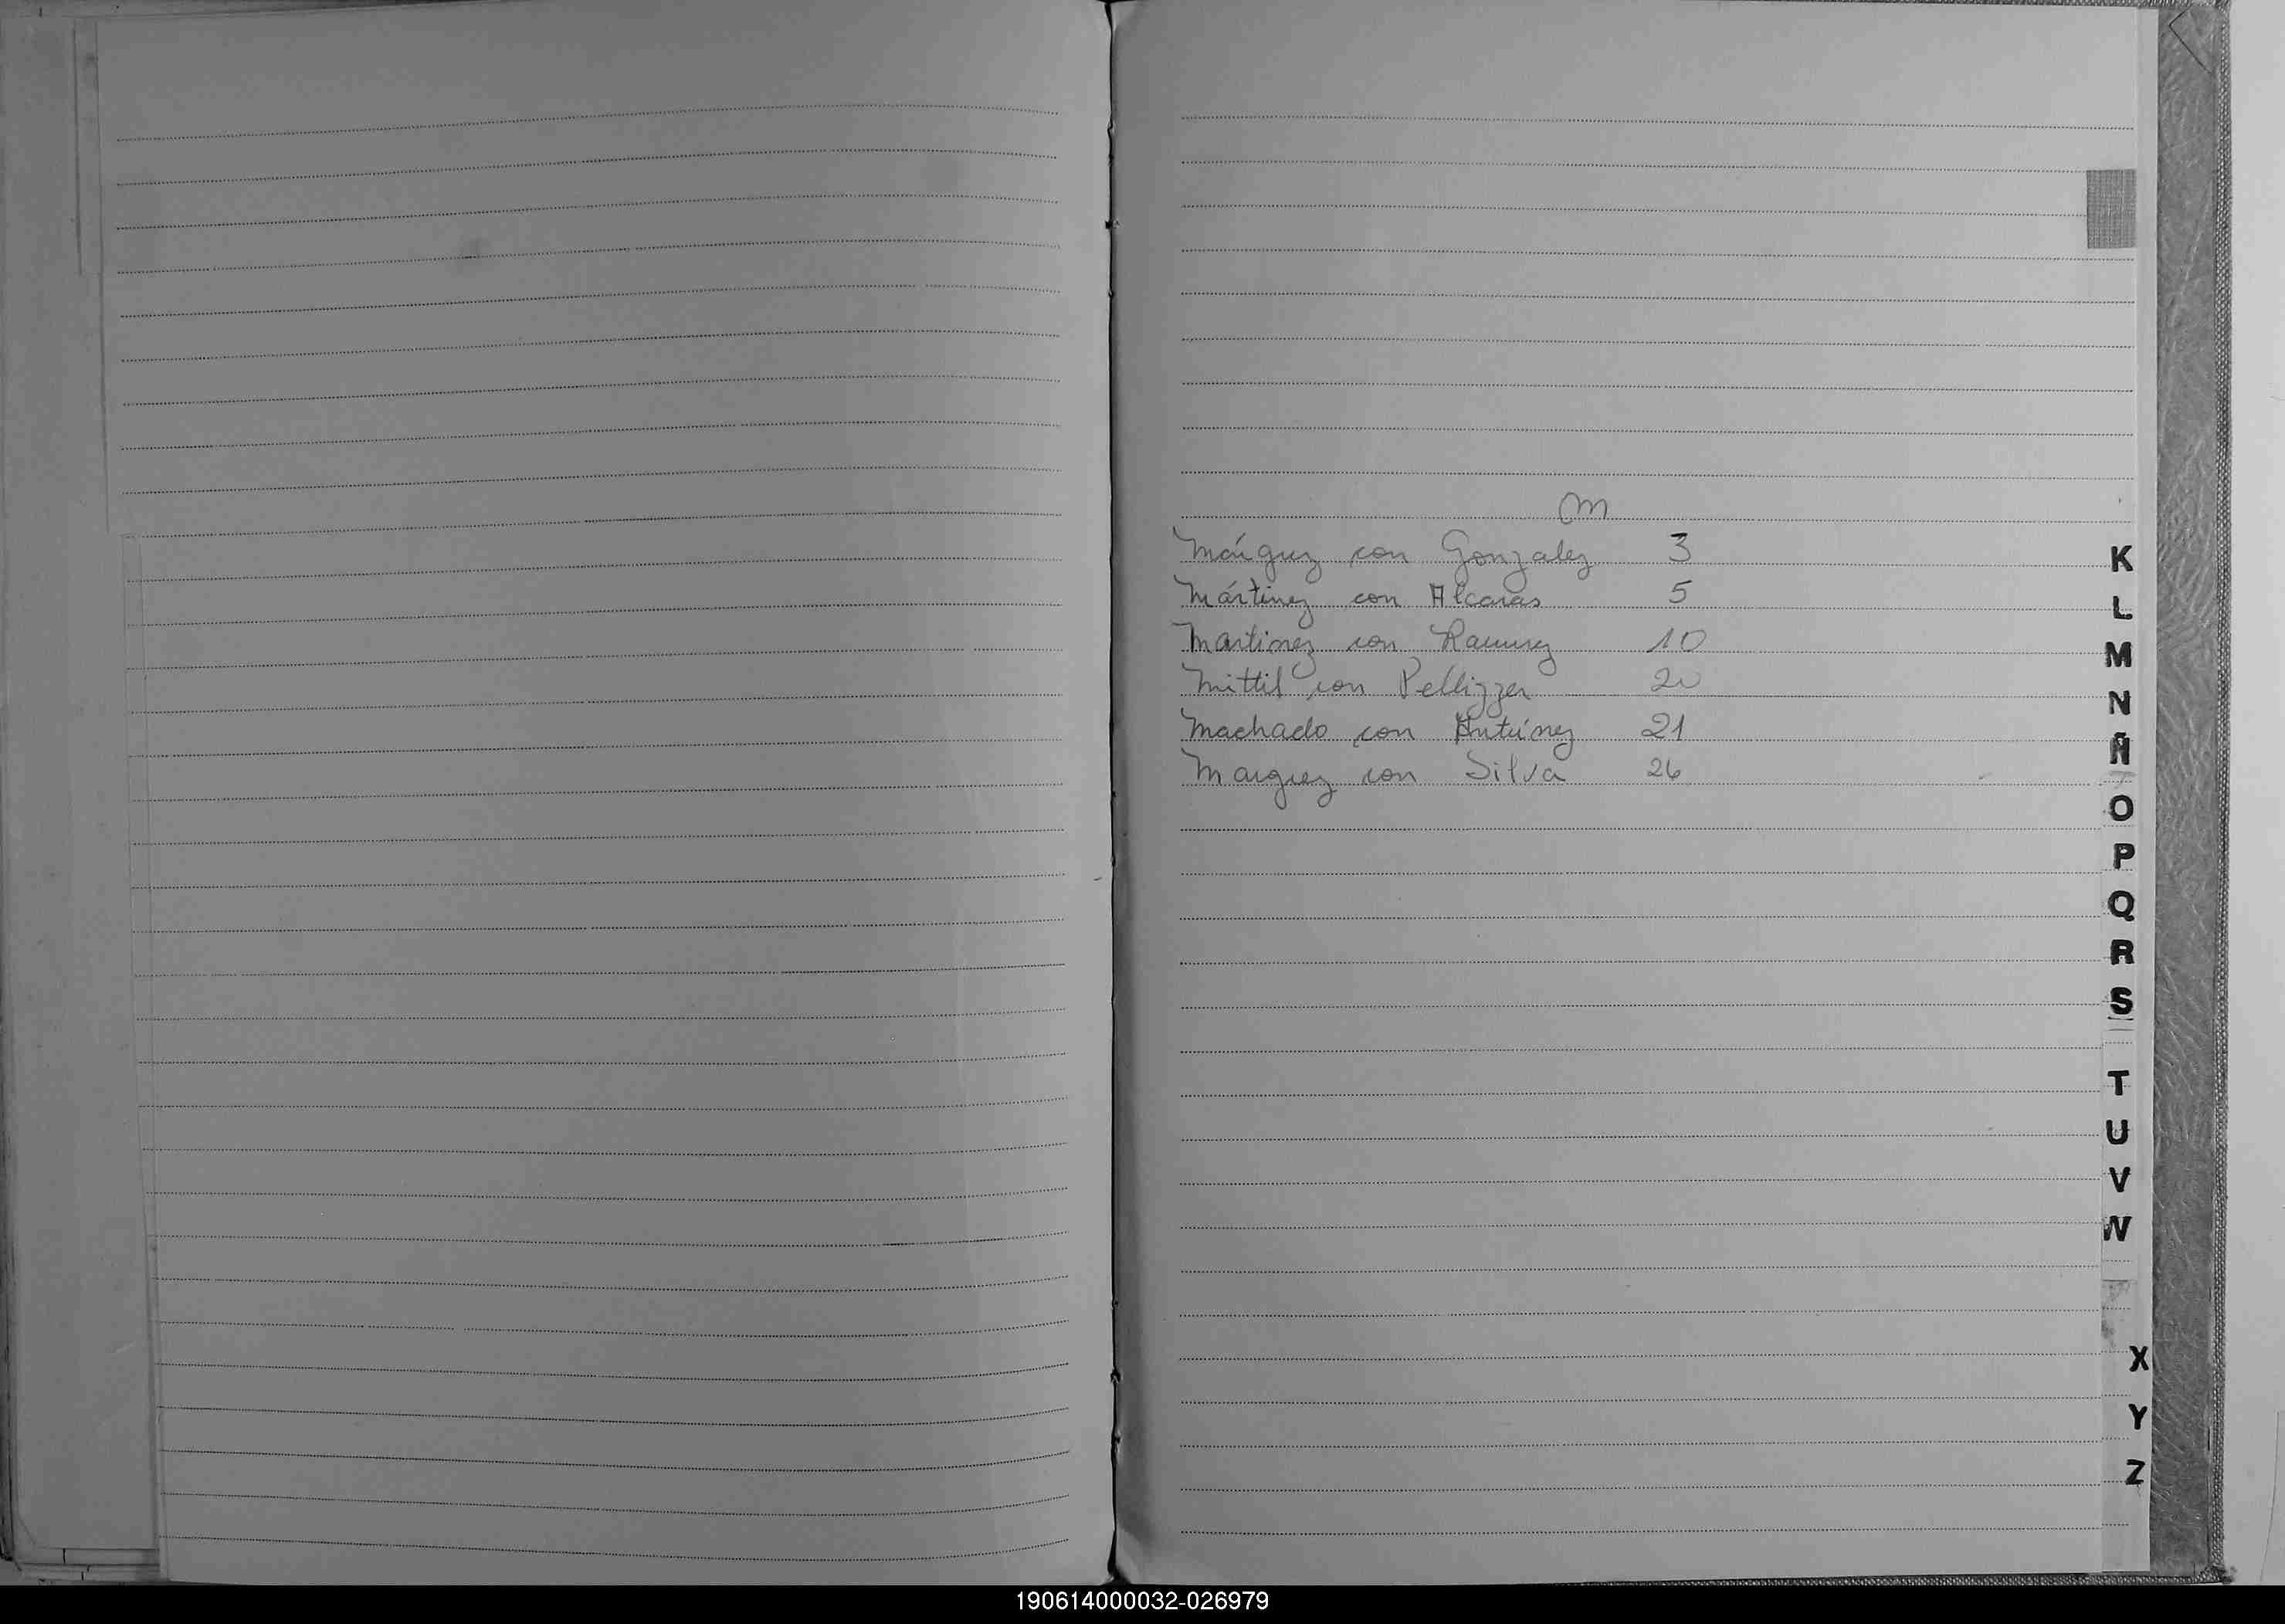 M
Márquez con Gonzalez 3
Mártinez con Alcaras 5
Martinez con Ramirez 10
Mittil con Pellizzer 20
Machado con Antúnez 21
Marquez con Silva 26
K
L
M
N
Ñ
O
P
Q
R
S
T
U
V
W
X
Y
Z
190614000032-026979